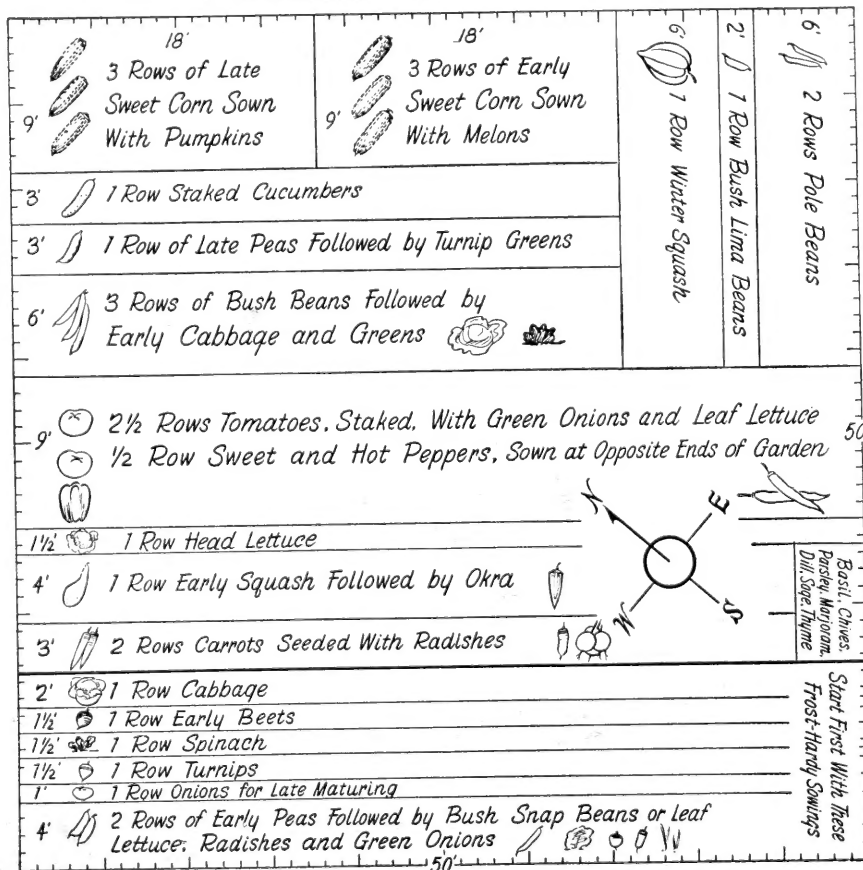 18'
3 Rows of Late
Sweet Corn Sown
With Pumpkins
9'
18'
3 Rows of Early
Sweet Corn Sown
With Melons
9'
6'
1 Row Winter Squash
2'
1 Row Bush Lima Beans
6'
2 Rows Pole Beans
3'
1 Row Staked Cucumbers
3'
1 Row of Late Peas Followed by Turnip Greens
6'
3 Rows of Bush Beans Followed by
Early Cabbage and Greens
9'
2½ Rows Tomatoes, Staked, With Green Onions and Leaf Lettuce
½ Row Sweet and Hot Peppers, Sown at Opposite Ends of Garden
50'
N
E
W
S
1½'
1 Row Head Lettuce
4'
1 Row Early Squash Followed by Okra
3'
2 Rows Carrots Seeded With Radishes
Basil, Chives,
Parsley, Marjoram,
Dill, Sage, Thyme
2'
1 Row Cabbage
1½'
1 Row Early Beets
1½'
1 Row Spinach
1½'
1 Row Turnips
1'
1 Row Onions for Late Maturing
4'
2 Rows of Early Peas Followed by Bush Snap Beans or Leaf
Lettuce, Radishes and Green Onions
Start First With These
Frost-Hardy Sowings
50'